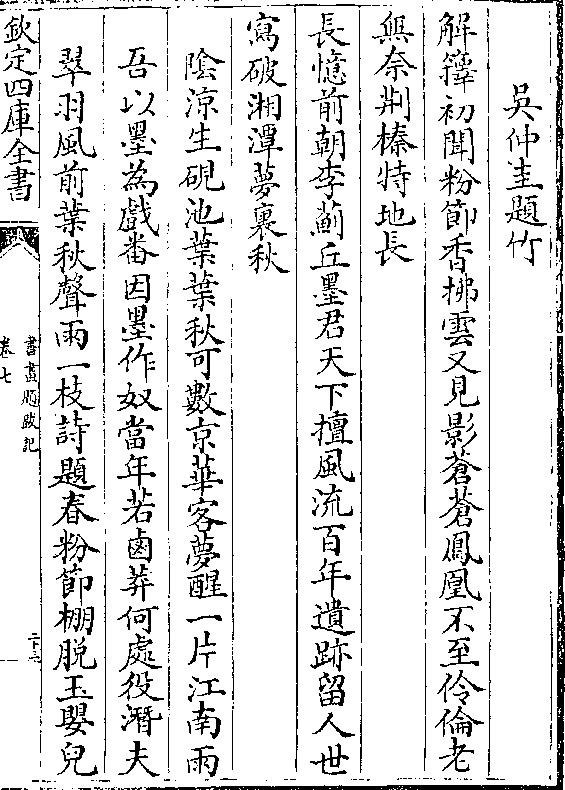 吳仲圭題竹
解籜初聞粉節香拂雲又見影蒼蒼鳳凰不至伶倫老
無奈荆榛特地長
長憶前朝李薊丘墨君天下擅風流百年遺跡留人世
寫破湘潭夢裏秋
陰涼生硯池葉葉秋可數京華客夢醒一片江南雨
吾以墨為戱番因墨作奴當年若鹵莽何處役潛夫
翠羽風前葉秋聲雨一枝詩題春粉節棚脱玉嬰兒
欽定四庫全書
書畫題跋記
卷七